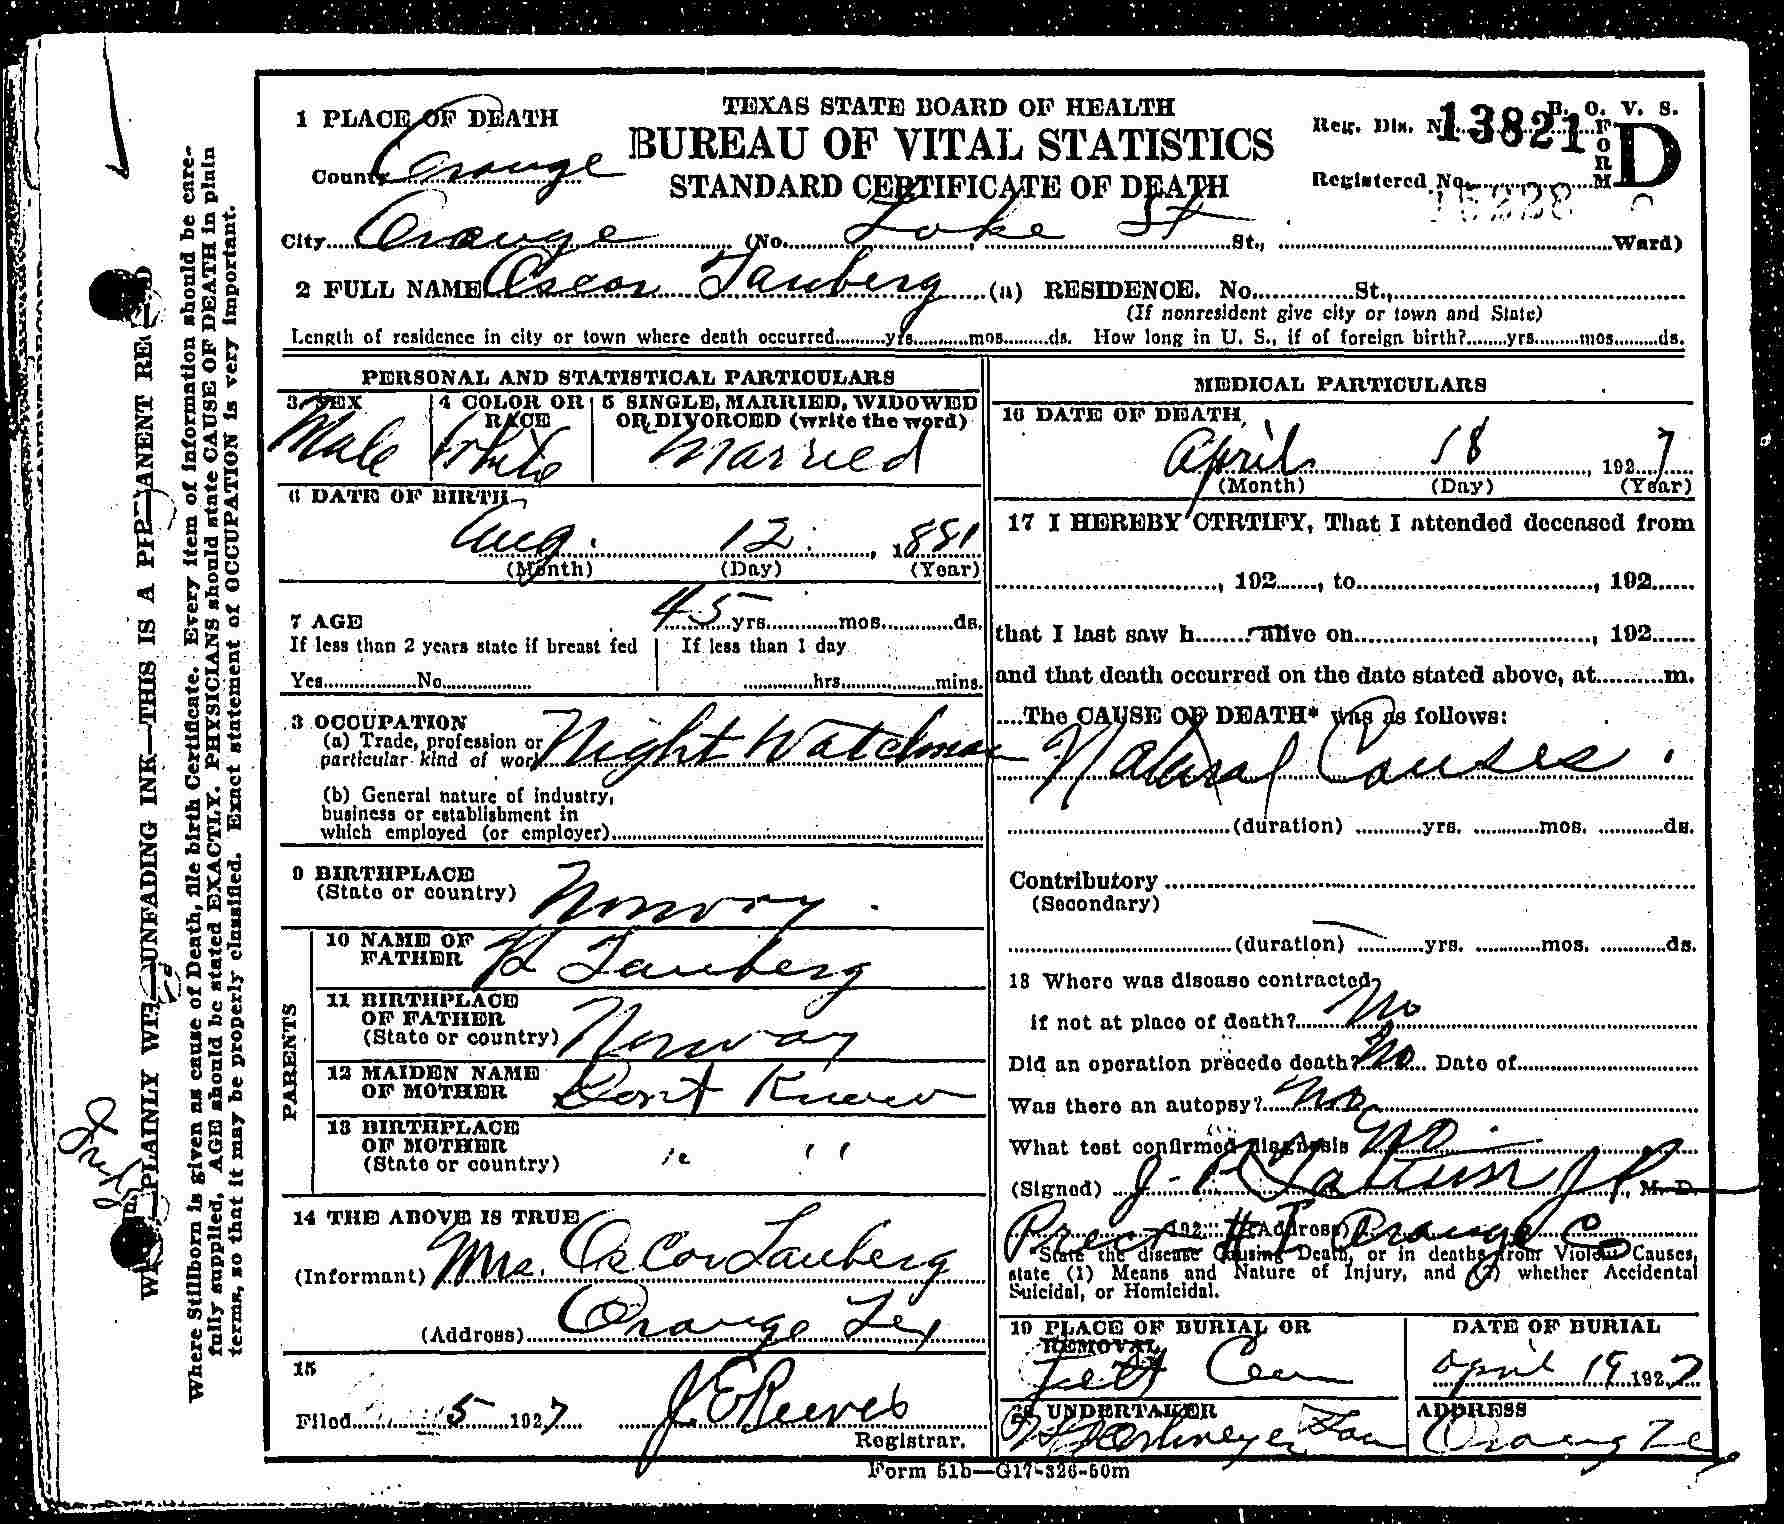 TEXAS STATE BOARD OF HEALTH
BUREAU OF VITAL STATISTICS
STANDARD CERTIFICATE OF DEATH
B. O. V. S.
FORM D
Reg. Dis. No. 13821
Registered No. 15228
1 PLACE OF DEATH
County Orange
City Orange (No. St., Ward)
2 FULL NAME Oscar Tauberg (a) RESIDENCE. No. St.,
(If nonresident give city or town and State)
Length of residence in city or town where death occurred yrs. mos. ds. How long in U. S., if of foreign birth? yrs. mos. ds.
PERSONAL AND STATISTICAL PARTICULARS
3 SEX
Male
4 COLOR OR RACE
White
5 SINGLE, MARRIED, WIDOWED
OR DIVORCED (write the word)
Married
6 DATE OF BIRTH
Aug. 12. 1881
(Month) (Day) (Year)
7 AGE 45 yrs. mos. ds.
If less than 2 years state if breast fed
Yes No
If less than 1 day
hrs. mins.
8 OCCUPATION
(a) Trade, profession or
particular kind of work Night Watchman
(b) General nature of industry,
business or establishment in
which employed (or employer)
9 BIRTHPLACE
(State or country) Norway.
PARENTS
10 NAME OF
FATHER Tauberg
11 BIRTHPLACE
OF FATHER
(State or country) Norway
12 MAIDEN NAME
OF MOTHER Dont Know
13 BIRTHPLACE
OF MOTHER
(State or country) " "
14 THE ABOVE IS TRUE
(Informant) Mrs. Oscar Tauberg
(Address) Orange Tex
15
Filed 5 1927 J. E. Reeves
Registrar.
MEDICAL PARTICULARS
16 DATE OF DEATH,
April 18, 1927
(Month) (Day) (Year)
17 I HEREBY CTRTIFY, That I attended deceased from
, 192 , to , 192
that I last saw h alive on , 192
and that death occurred on the date stated above, at m.
The CAUSE OF DEATH* was as follows:
Natural Causes.
(duration) yrs. mos. ds.
Contributory
(Secondary)
(duration) yrs. mos. ds.
18 Where was disease contracted
if not at place of death? No
Did an operation precede death? No Date of
Was there an autopsy? No
What test confirmed diagnosis No
(Signed) J. P., M. D.
Prect #1 Orange Co
192 (Address)
State the disease Causing Death, or in deaths from Violent Causes,
state (1) Means and Nature of Injury, and (2) whether Accidental
Suicidal, or Homicidal.
19 PLACE OF BURIAL OR
REMOVAL
Jett Cem
DATE OF BURIAL
April 19 1927
20 UNDERTAKER
ADDRESS
Orange Tex
Form 51b—G17-326-50m
WRITE PLAINLY WITH UNFADING INK—THIS IS A PERMANENT RECORD
Where Stillborn is given as cause of Death, file birth Certificate. Every item of information should be care-
fully supplied. AGE should be stated EXACTLY. PHYSICIANS should state CAUSE OF DEATH in plain
terms, so that it may be properly classified. Exact statement of OCCUPATION is very important.